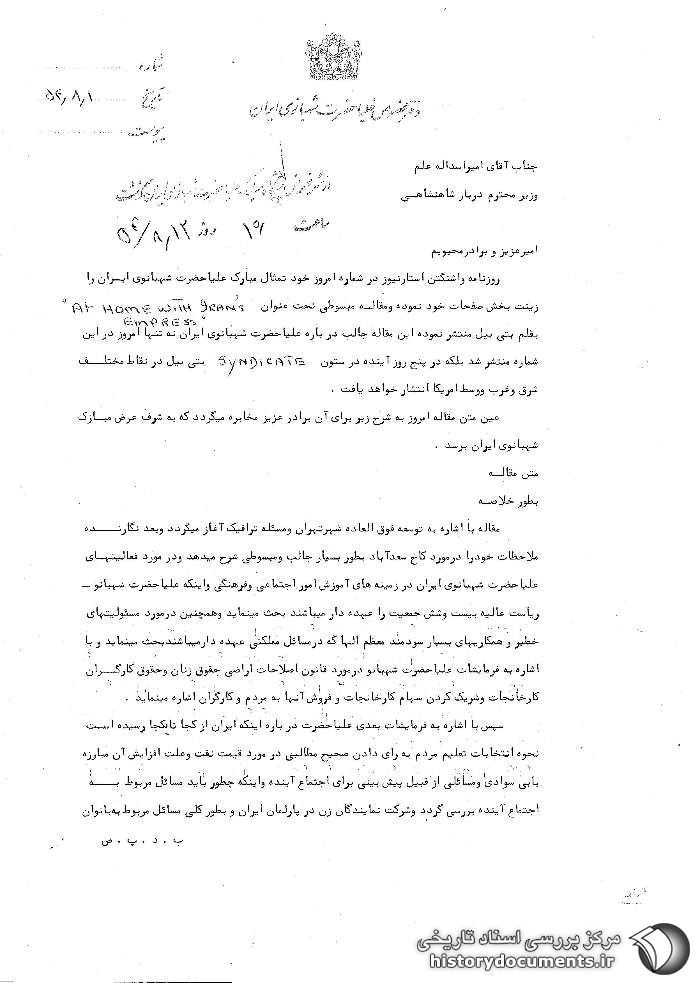 شماره
تاریخ ۵۴,۸,۱
پیوست
دفتر مخصوص علیاحضرت شهبانوی ایران
جناب آقای امیراسداله علم
وزیر محترم دربار شاهنشاهی
از شرف عرض پیشگاه مبارک علیاحضرت شهبانوی ایران گذشت
ساعت ۱۹ روز ۵۴/۸,۱۲
امیرعزیز و برادرمحبوبم
روزنامه واشنگتن استارنیوز در شماره امروز خود تمثال مبارک علیاحضرت شهبانوی ایران را
زینت بخش صفحات خود نموده ومقاله مبسوطی تحت عنوان "AT HOME WITH IRAN'S
EMPRESS"
بقلم بتی بیل منتشر نموده این مقاله جالب در باره علیاحضرت شهبانوی ایران نه تنها امروز در این
شماره منتشر شد بلکه در پنج روز آینده در ستون SYNDICATE بتی بیل در نقاط مختلف
شرق وغرب ووسط امریکا انتشار خواهد یافت .
عین متن مقاله امروز به شرح زیر برای آن برادر عزیز مخابره میگردد که به شرف عرض مبارک
شهبانوی ایران برسد .
متن مقاله
بطور خلاصه
مقاله با اشاره به توسعه فوق العاده شهرتهران ومسئله ترافیک آغاز میگردد وبعد نگارنده
ملاحظات خودرا درمورد کاخ سعدآباد بطور بسیار جالب ومبسوطی شرح میدهد ودر مورد فعالیتهای
علیاحضرت شهبانوی ایران در زمینه های آموزش امور اجتماعی وفرهنگی واینکه علیاحضرت شهبانو ـ
ریاست عالیه بیست وشش جمعیت را عهده دار میباشند بحث مینماید وهمچنین درمورد مسئولیتهای
خطیر و همکاریهای بسیار سودمند معظم الها که درمسائل مملکتی عهده دارمیباشندبحث مینماید و با
اشاره به فرمایشات علیاحضرت شهبانو درمورد قانون اصلاحات اراضی حقوق زنان وحقوق کارگران
کارخانجات وشریک کردن سهام کارخانجات و فروش آنها به مردم و کارگران اشاره مینماید .
سپس با اشاره به فرمایشات بعدی علیاحضرت در باره اینکه ایران از کجا تابکجا رسیده است
نحوه انتخابات تعلیم مردم به رای دادن صحیح مطالبی در مورد قیمت نفت وعلت افزایش آن مبارزه
بابی سوادی ومسائلی از قبیل پیش بینی برای اجتماع آینده واینکه چطور باید مسائل مربوط به
اجتماع آینده بررسی گردد وشرکت نمایندگان زن در پارلمان ایران و بطور کلی مسائل مربوط به بانوان
ب . د . پ . ص
مرکز بررسی اسناد تاریخی
historydocuments.ir